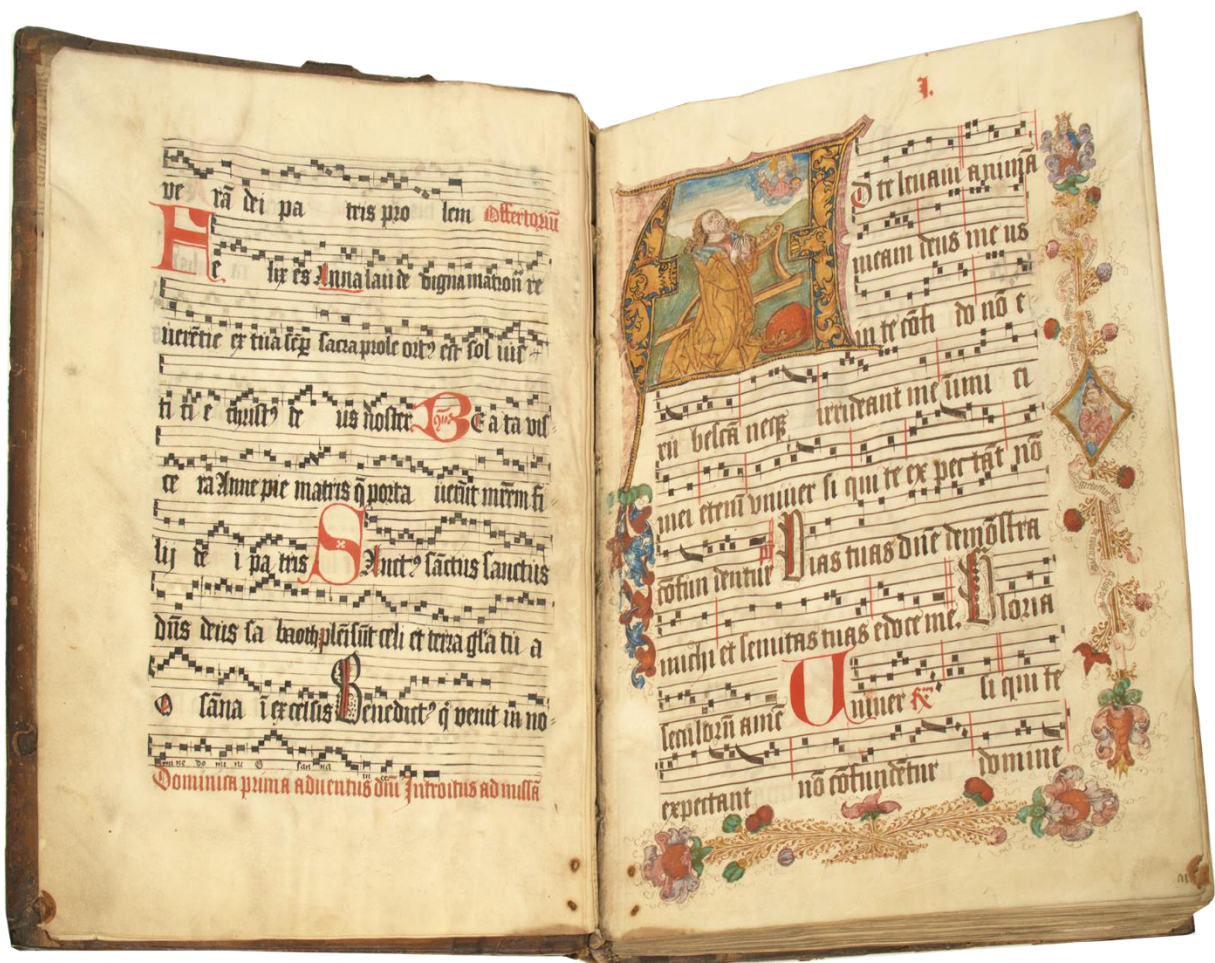 ve rā dei pa tris pro lem Offertoriū
Fe lix es Anna laude digna matron re
uerētie ex tua sēp sacra prole ortꝰ est sol ius-
ti ti e christꝰ de us noster Be a ta vis-
ce ra Anne pie matris q̄ porta uerūt mr̄em fi
lij de i pa tris Sanctꝰ sāctus sanctus
dn̄s deus sa baoth plēi sūt celi et terra gl̄a tu a
O sāna ī excelsis Benedictꝰ q̄ venit in no-
mi ne do mi ni O san na in
Dominica prima aduentus dn̄i Introitus ad missā
I.
AD te leuaui animā
meam deus me us
in te cōfi do nō e
rubescā neqꝫ irrideant me inimi ci
mei etenī vniuer si qui te ex pec tāt nō
cōfun dentur ps Uias tuas dn̄e demōstra
michi et semitas tuas edoce me. Gloria
seculorū amē Uniuer si qui te
expectant nō cōfundētur domine